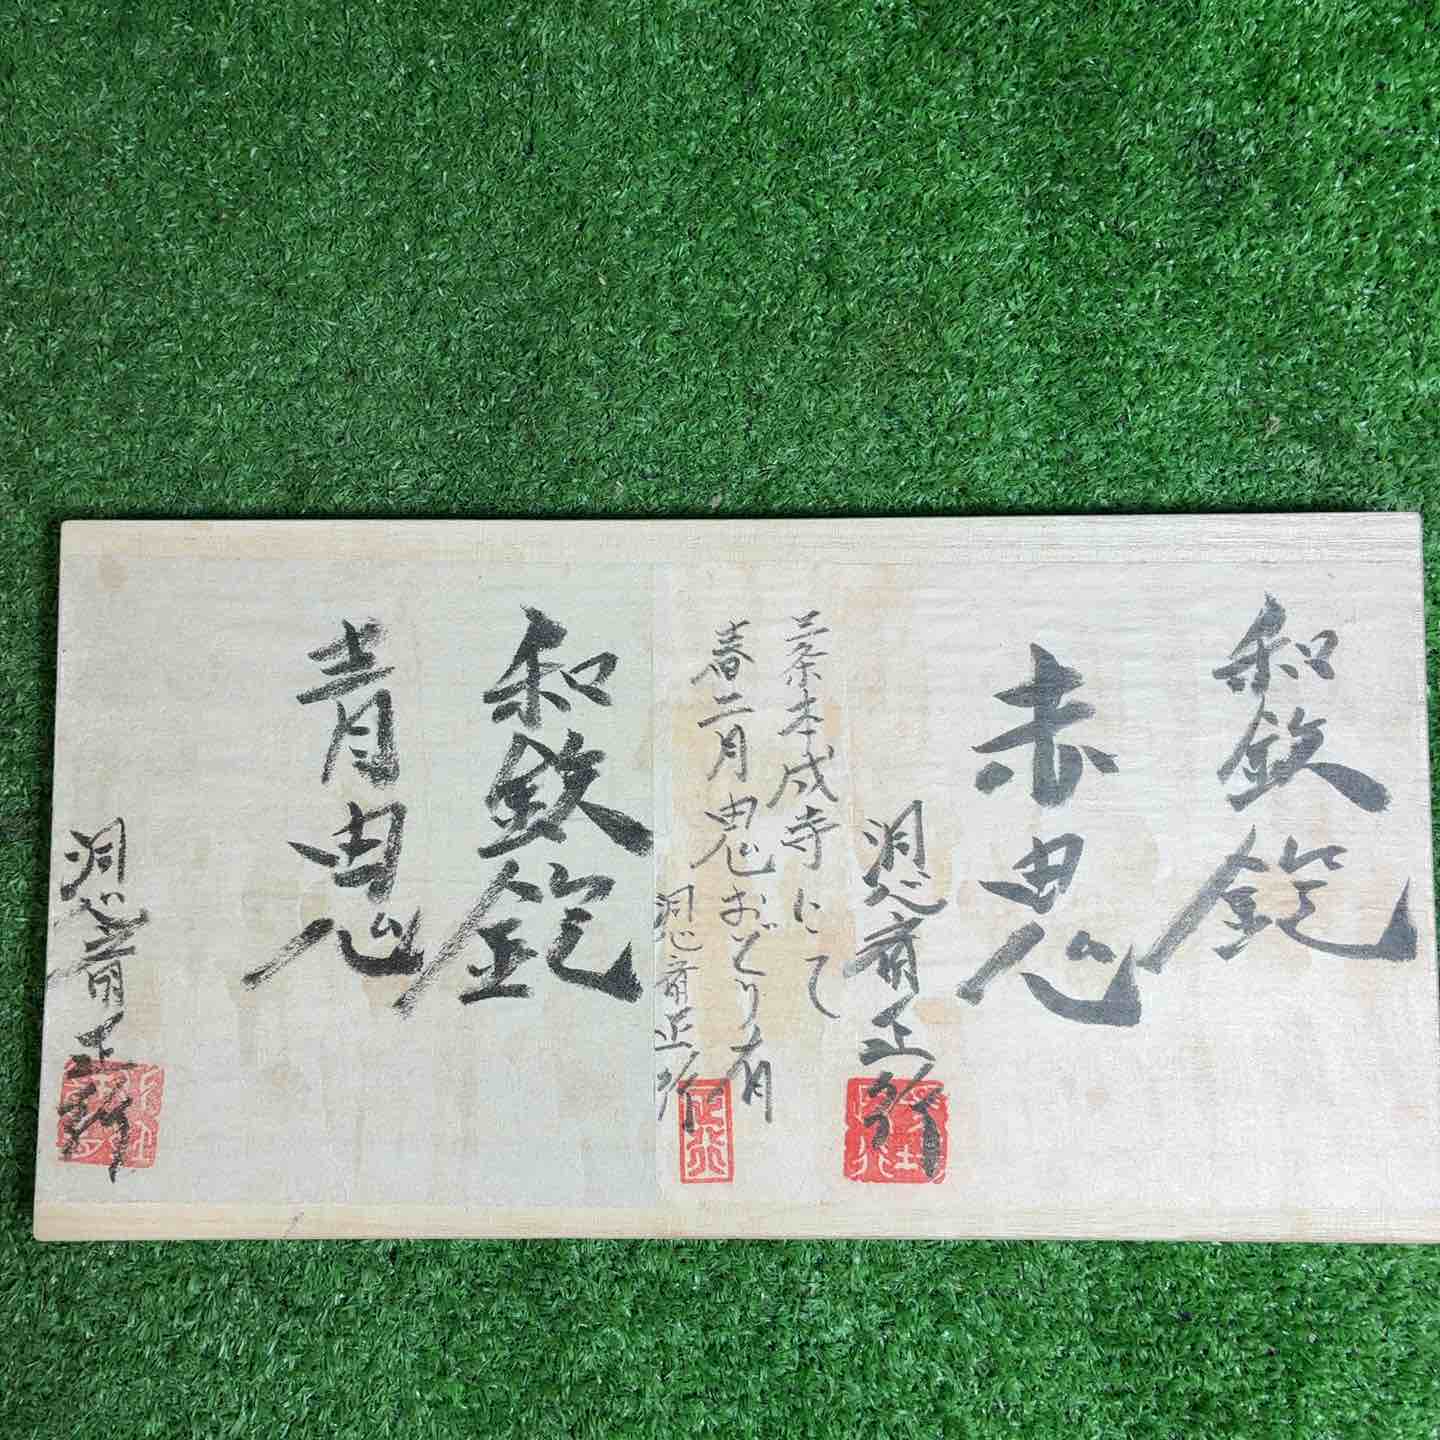 和鉄鉋
赤鬼
洞心斎正行
三条本成寺にて
春二月鬼おどり有
洞心斎正行
正行
和鉄鉋
青鬼
洞心斎正行